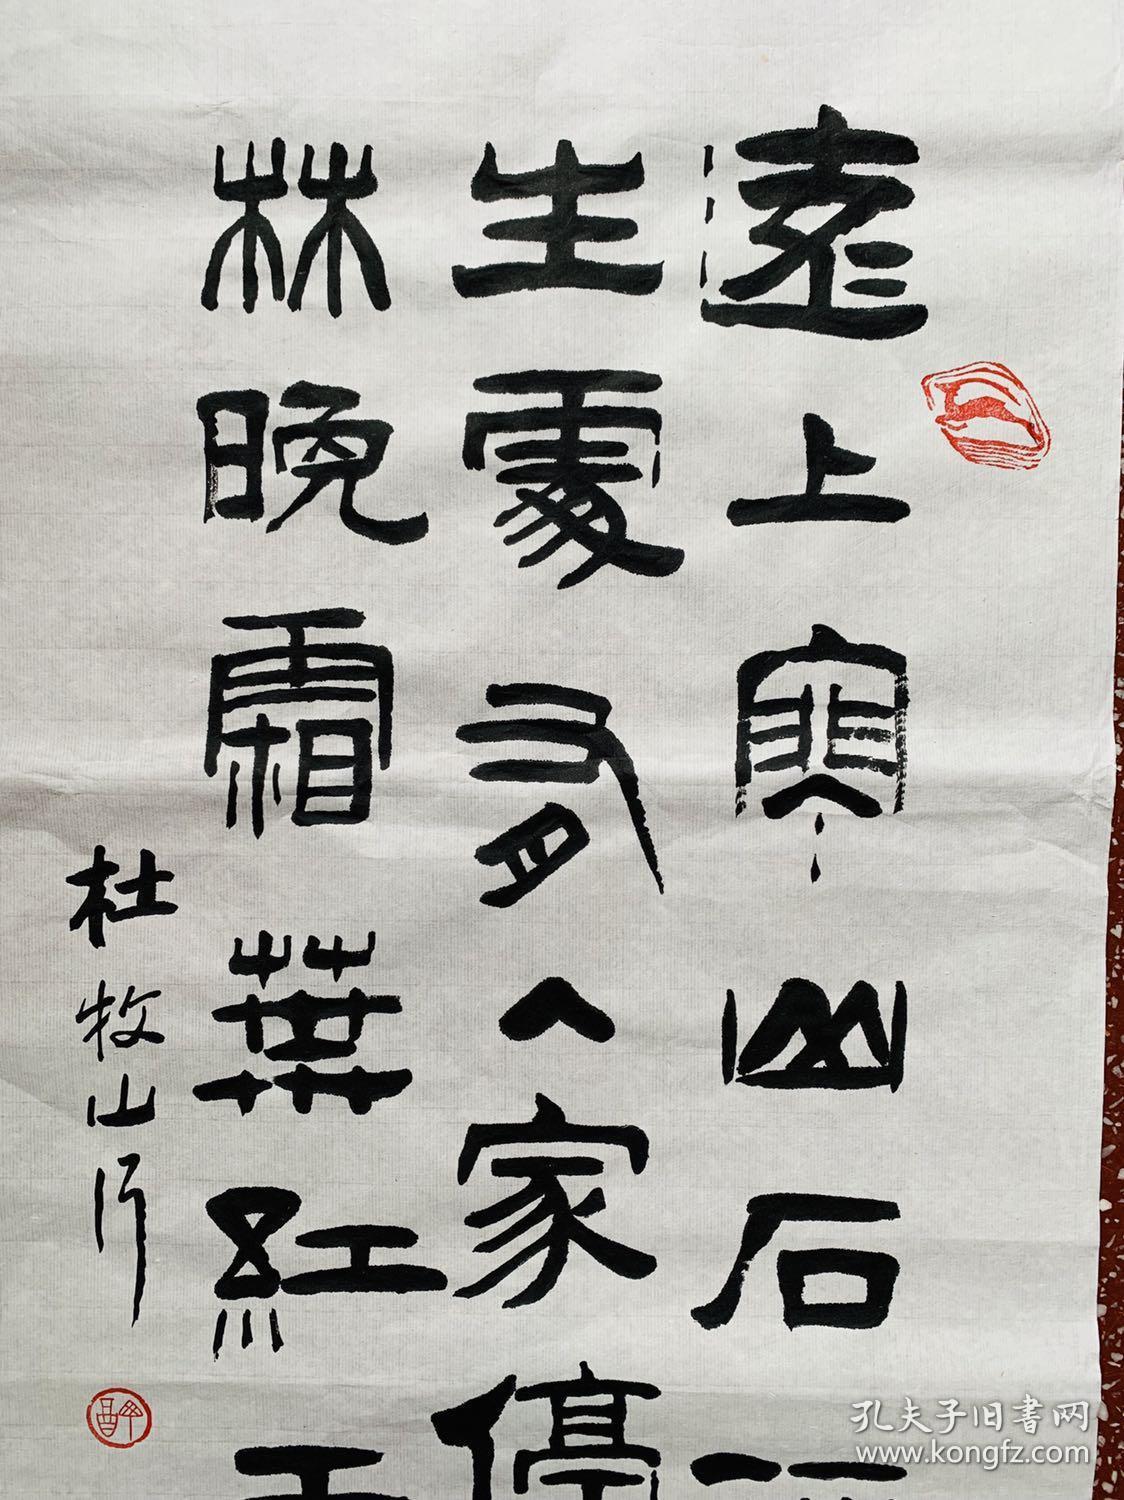 遠上寒山石
生處有人家停
林晚霜葉紅
杜牧山行
孔夫子旧書网
www.kongfz.com